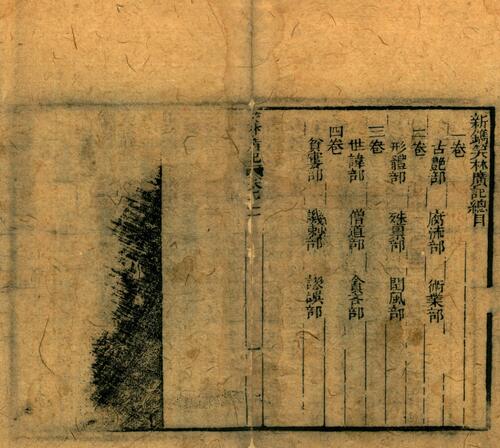 新鐫笑林廣記總目
一卷
古艷部 腐流部 術業部
二卷
形體部 殊稟部 閨風部
三卷
世諱部 僧道部 貪吝部
四卷
貧窶部 譏刺部 謬誤部
林廣記